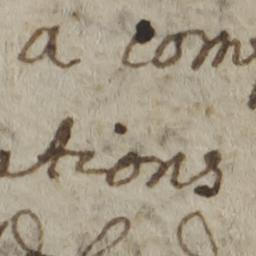 a com
ations